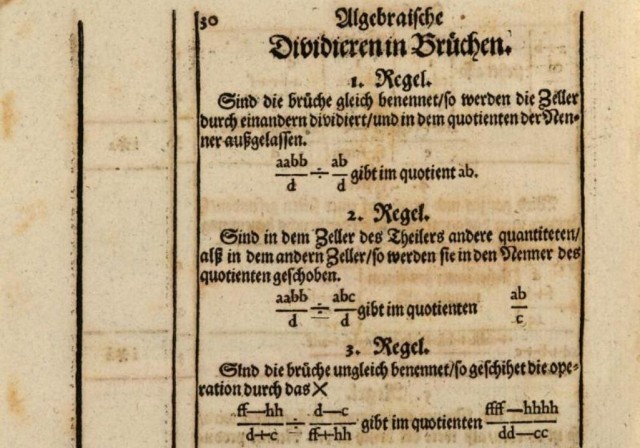 30 Algebraische
Dividieren in Brüchen.
1. Regel.
Sind die brüche gleich benennet/so werden die Zeller
durch einandern dividiert/und in dem quotienten der Nen-
ner außgelassen.
aabb/d ÷ ab/d gibt im quotient ab.
2. Regel.
Sind in dem Zeller des Theilers andere quantiteten/
alß in dem andern Zeller/so werden sie in den Nenner des
quotienten geschoben.
aabb/d ÷ abc/d gibt im quotienten ab/c
3. Regel.
Sind die brüche ungleich benennet/so geschihet die ope-
ration durch das ×
ff—hh/d+c ÷ d—c/ff+hh gibt im quotienten ffff—hhhh/dd—cc